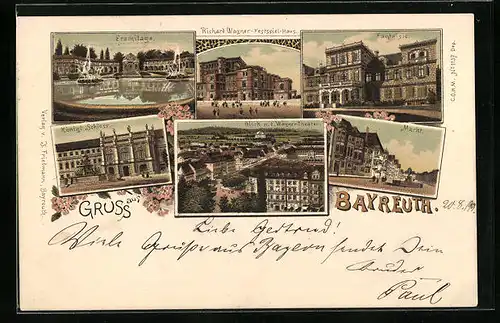 Eremitage.
Richard Wagner-Festspiel-Haus.
Fantaisie.
Königl. Schloss.
Blick a. d. Wagner-Theater
Markt.
Verlag v. B. Friedmann, Bayreuth.
GRUSS aus
BAYREUTH.
Liebe Gertrud!
Viele Grüsse aus Bayern sendet Dein
Bruder
Paul